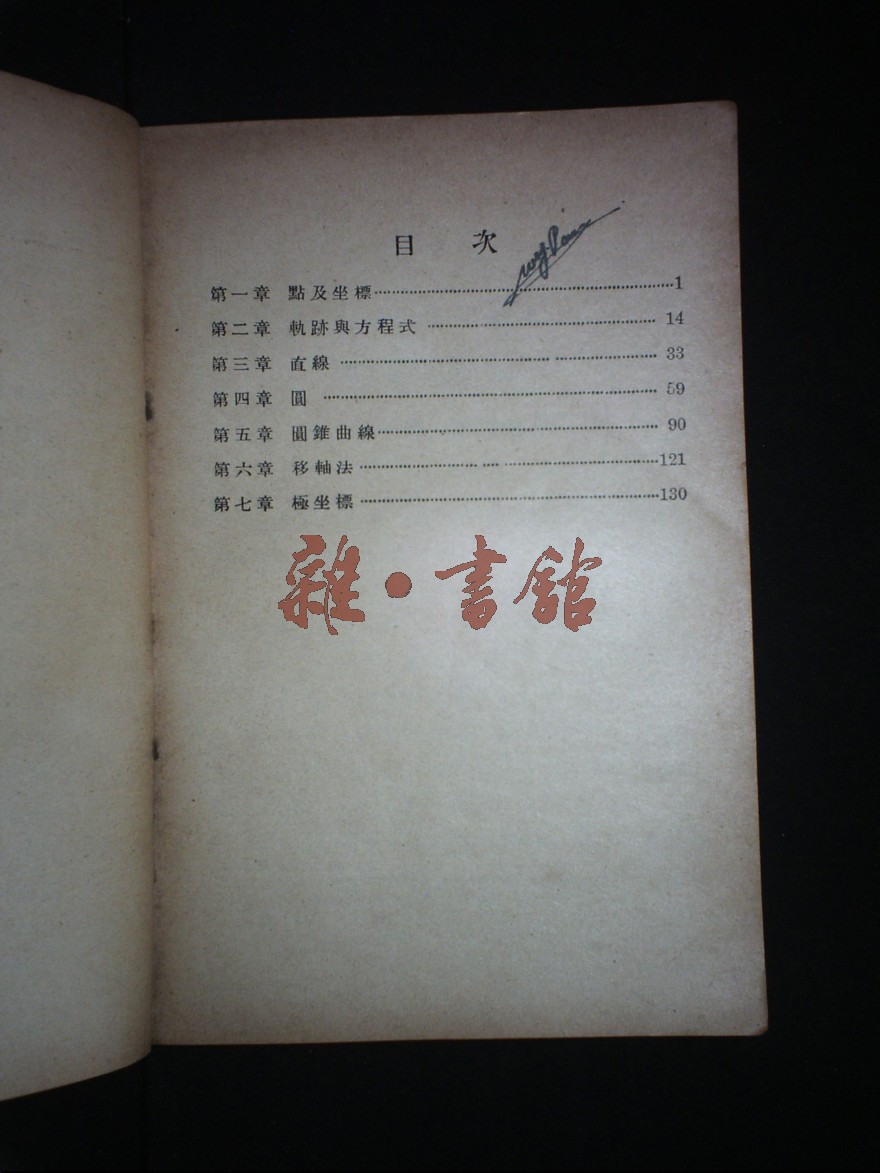 目 次
第一章 點及坐標⋯⋯⋯⋯⋯⋯⋯⋯⋯⋯1
第二章 軌跡與方程式⋯⋯⋯⋯⋯⋯⋯⋯14
第三章 直線⋯⋯⋯⋯⋯⋯⋯⋯⋯⋯33
第四章 圓⋯⋯⋯⋯⋯⋯⋯⋯⋯⋯59
第五章 圓錐曲線⋯⋯⋯⋯⋯⋯⋯⋯90
第六章 移軸法⋯⋯⋯⋯⋯⋯⋯⋯⋯121
第七章 極坐標⋯⋯⋯⋯⋯⋯⋯⋯⋯130
雜·書館